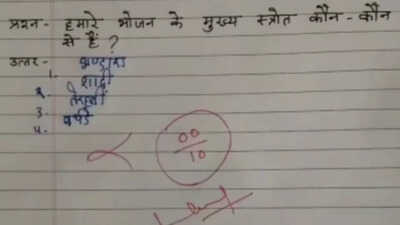 प्रश्न- हमारे भोजन के मुख्य स्त्रोत कौन-कौन
से हैं ?
उत्तर-
1. भण्डारा
2. शादी
3. तेरहवीं
4. बर्थडे
00
10